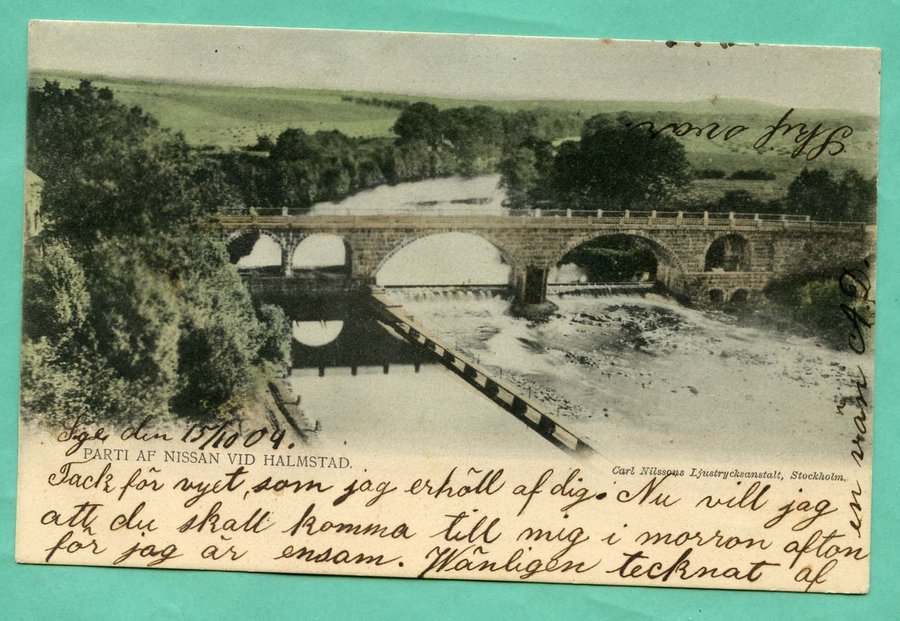 Skrif snart
Sge. den 15/10 04.
PARTI AF NISSAN VID HALMSTAD.
Carl Nilssons Ljustrycksanstalt, Stockholm.
Tack för vyet, som jag erhöll af dig. Nu vill jag
att du skall komma till mig i morron afton
för jag är ensam. Wänligen tecknat af
en vän A. D.